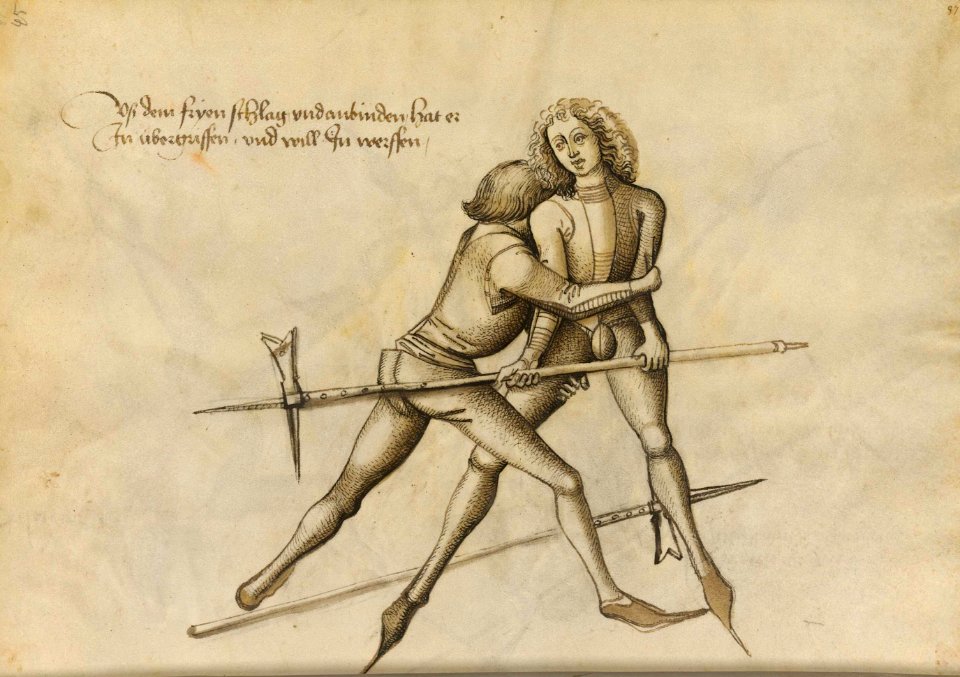 87
Vß dem fryen schlag vnd anbinden hat er
In übergriffen · vnd will In werffen ·